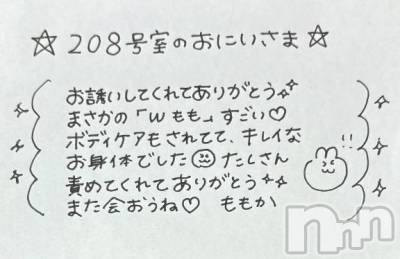 ☆208号室のおにいさま☆
お誘いしてくれてありがとう
まさかの「Wもも」すごい♡
ボディケアもされてて、キレイな
お身体でした☺たしさん
責めてくれてありがとう
また会おうね♡ ももか
!!
nnn